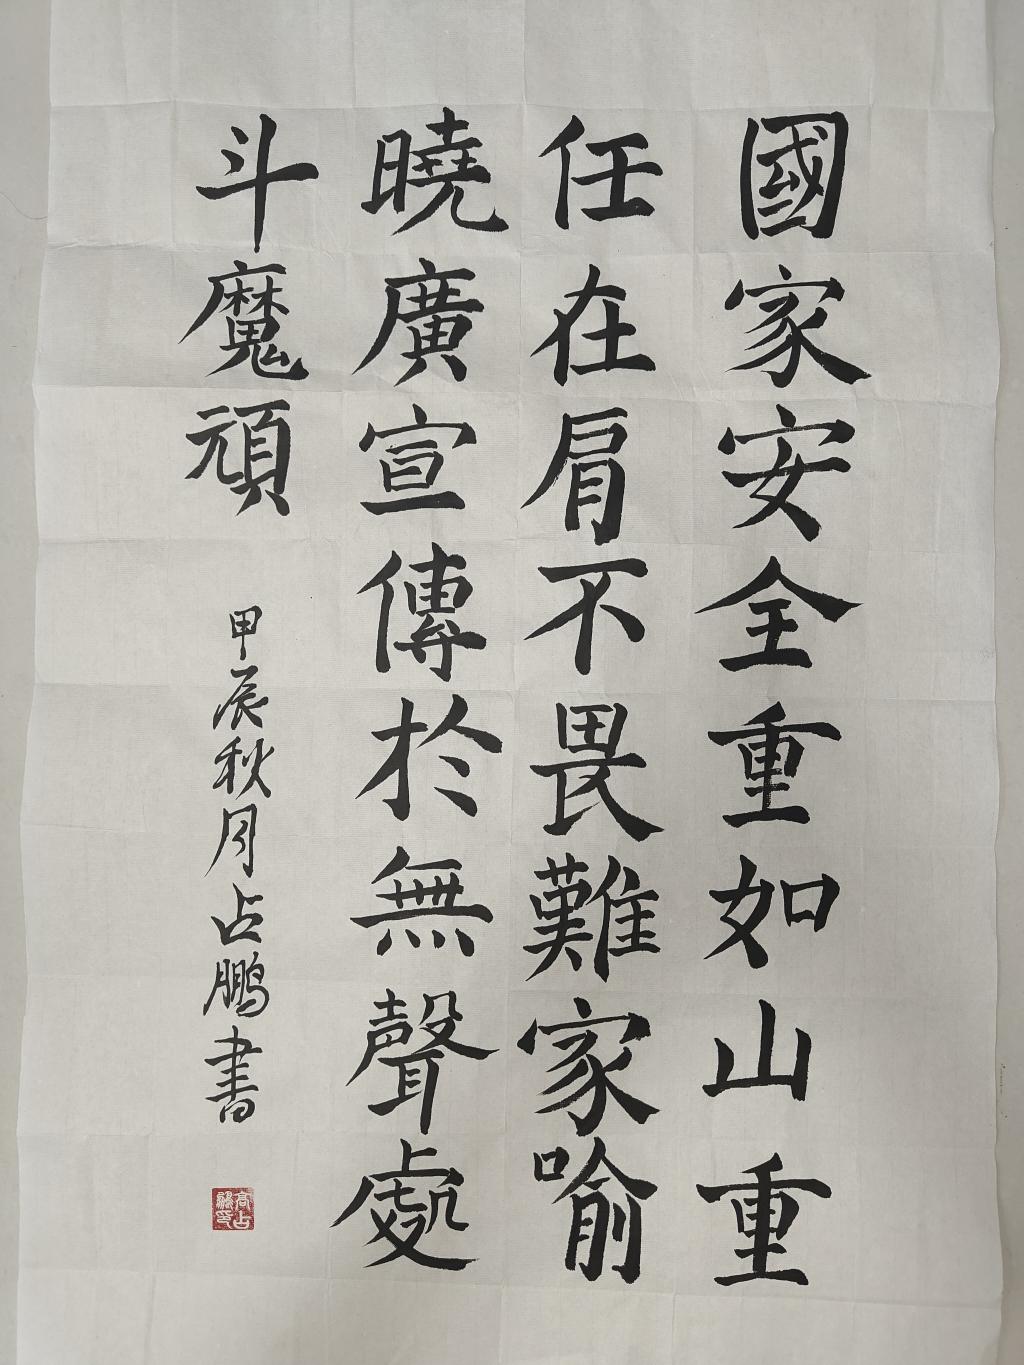 國家安全重如山重
任在肩不畏難家喻
曉廣宣傳於無聲處
斗魔頑
甲辰秋月占鵬書
高占鵬印